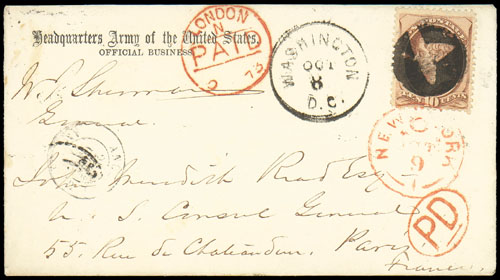 Headquarters Army of the United States,
OFFICIAL BUSINESS.
LONDON
PAID
73
WASHINGTON
OCT
8
D.C.
10 CENTS
W. T. Sherman
General
NEW YORK
9
PD
Meredith Read Esq
U. S. Consul General
55. Rue de Chateaudun. Paris
France